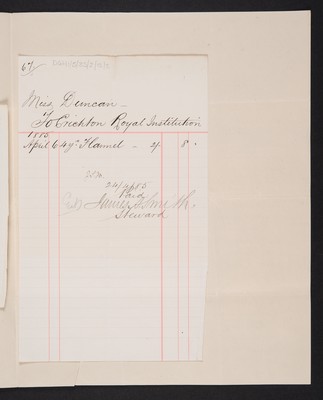 67/
Miss Duncan
To Crichton Royal Institution
1885
April 6 4 yds Flannel - 2/ 8 "
24/4/85
Paid
James Smith.
Steward